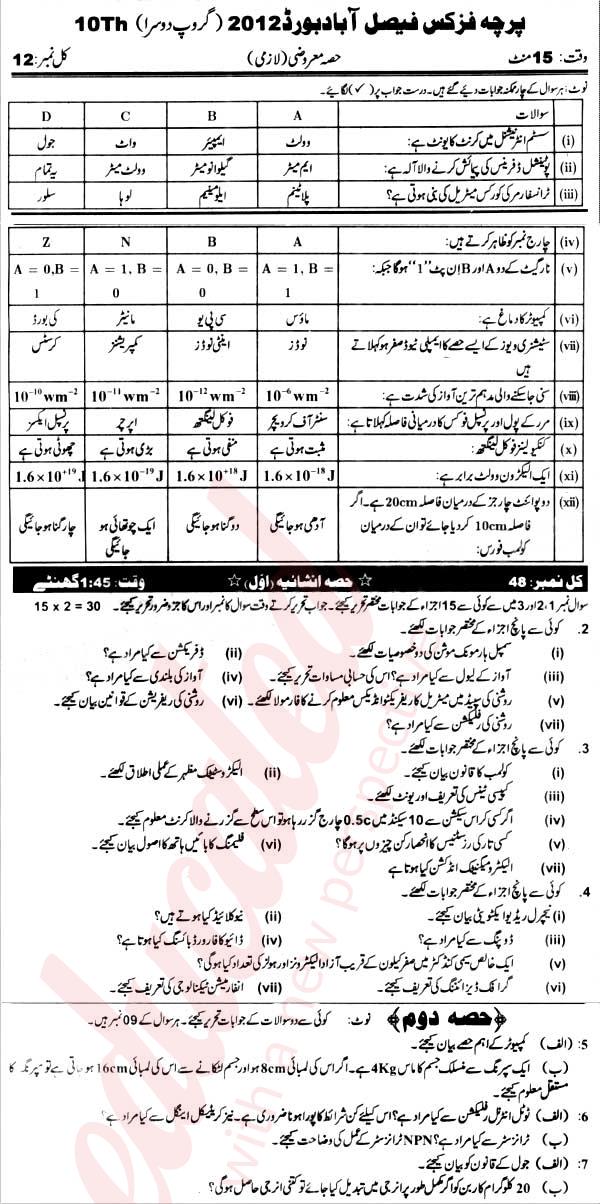 پرچہ فزکس فیصل آباد بورڈ 2012 (گروپ دوسرا) 10Th
وقت: 15 منٹ حصہ معروضی (لازمی) کل نمبر: 12
نوٹ: ہر سوال کے چار ممکنہ جوابات دیئے گئے ہیں۔ درست جواب پر (✓) لگائیے۔
سوالات A B C D
(i) سسٹم انٹرنیشنل میں کرنٹ کا یونٹ ہے: وولٹ ایمپیئر واٹ جول
(ii) پوٹینشل ڈفرینس کی پیمائش کرنے والا آلہ ہے: ایم میٹر گیلوانومیٹر وولٹ میٹر یہ تمام
(iii) ٹرانسفارمر کی کور کس میٹریل کی بنی ہوتی ہے؟ پلاٹینم ایلومینیم لوہا سلور
(iv) چارج نمبر کو ظاہر کرتے ہیں: A B N Z
(v) نار گیٹ کے دو A اور B اِن پٹ "1" ہوگا جبکہ: A = 1, B = 1 A = 0, B = 0 A = 1, B = 0 A = 0, B = 1
(vi) کمپیوٹر کا دماغ ہے: ماؤس سی پی یو مانیٹر کی بورڈ
(vii) سٹیشنری ویوز کے ایسے حصے کا ایمپلی ٹیوڈ صفر ہو کہلاتے ہیں نوڈز اینٹی نوڈز کمپریشنز کرسٹس
(viii) سنی جا سکنے والی مدہم ترین آواز کی شدت ہے: 10⁻⁶wm⁻² 10⁻¹²wm⁻² 10⁻¹¹wm⁻² 10⁻¹⁰wm⁻²
(ix) مرر کے پول اور پرنسپل فوکس کا درمیانی فاصلہ کہلاتا ہے: سنٹر آف کرویچر فوکل لینگتھ اپرچر پرنسپل ایکسز
(x) کنکیو لینز فوکل لینگتھ: مثبت ہوتی ہے منفی ہوتی ہے بڑی ہوتی ہے چھوٹی ہوتی ہے
(xi) ایک الیکٹرون وولٹ برابر ہے: 1.6×10⁻¹⁸J 1.6×10⁺¹⁸J 1.6×10⁻¹⁹J 1.6×10⁺¹⁹J
(xii) دو پوائنٹ چارجز کے درمیان فاصلہ 20cm ہے۔ اگر فاصلہ 10cm کر دیا جائے تو ان کے درمیان کولمب فورس: آدھی ہو جائیگی دو گنا ہو جائیگی ایک چوتھائی ہو جائیگی چار گنا ہو جائیگی
کل نمبر: 48 ☆ حصہ انشائیہ (اوّل) ☆ وقت: 1:45 گھنٹے
سوال نمبر 2،1 اور 3 میں سے کوئی سے 15 اجزاء کے جوابات مختصر تحریر کیجئے۔ جواب تحریر کرتے وقت سوال کا نمبر اور اس کا جزو ضرور تحریر کیجئے۔ 15 x 2 = 30
2. کوئی سے پانچ اجزاء کے مختصر جوابات لکھئے۔
(i) سمپل ہارمونک موشن کی دو خصوصیات لکھئے۔ (ii) ڈفریکشن سے کیا مراد ہے؟
(iii) آواز کے لیول سے کیا مراد ہے؟ اس کی حسابی مساوات تحریر کیجئے۔ (iv) آواز کی بلندی سے کیا مراد ہے؟
(v) روشنی کی سپیڈ میں میٹریل کا ریفریکٹو انڈیکس معلوم کرنے کا فارمولا لکھئے۔ (vi) روشنی کی ریفریشن کے قوانین بیان کیجئے۔
(vii) روشنی کی رفلیکشن سے کیا مراد ہے؟
3. کوئی سے پانچ اجزاء کے مختصر جوابات لکھئے۔
(i) کولمب کا قانون بیان کیجئے۔ (ii) الیکٹروسٹیٹک مظہر کے عملی اطلاق لکھئے۔
(iii) کپیسی ٹینس کی تعریف اور یونٹ لکھئے۔
(iv) اگر کسی کراس سیکشن سے 10 سیکنڈ میں 0.5c چارج گزر رہا ہو تو اس سطح سے گزرنے والا کرنٹ معلوم کیجئے۔
(v) کسی تار کی رزسٹینس کا انحصار کن چیزوں پر ہوگا؟ (vi) فلیمنگ کا بائیں ہاتھ کا اصول بیان کیجئے۔
(vii) الیکٹرومیگنیٹک انڈکشن کیا ہوتا ہے
4. کوئی سے پانچ اجزاء کے مختصر جوابات لکھئے۔
(i) نیچرل ریڈیو ایکٹویٹی بیان کیجئے۔ (ii) نیوکلائیڈ کیا ہوتے ہیں؟
(iii) ڈوپنگ سے کیا مراد ہے؟ (iv) ڈائیو کا فارورڈ بائسنگ کیا ہوتا ہے؟
(v) ایک خالص سیمی کنڈکٹر میں صفر کیلون کے قریب آزاد الیکٹرونز اور ہولز کی تعداد کیا ہوگی؟
(vi) گرافک ڈیزائننگ کی تعریف کیجئے۔ (vii) انفارمیشن ٹیکنالوجی کی تعریف کیجئے۔
حصہ دوم نوٹ: کوئی سے دو سوالات کے جوابات تحریر کیجئے۔ ہر سوال کے 09 نمبر ہیں۔
5: (الف) کمپیوٹر کے اہم حصے بیان کیجئے۔
(ب) ایک سپرنگ سے منسلک جسم کا ماس 4Kg ہے۔ اگر اس کی لمبائی 8cm ہو اور جسم لٹکانے سے اس کی لمبائی 16cm ہو جاتی ہے تو سپرنگ کا مستقل معلوم کیجئے۔
6: (الف) ٹوٹل انٹرنل رفلیکشن سے کیا مراد ہے؟ اس کیلئے کن شرائط کا پورا ہونا ضروری ہے۔ نیز کریٹیکل اینگل سے کیا مراد ہے؟
(ب) ٹرانزسٹر سے کیا مراد ہے؟ NPN ٹرانزسٹر کے عمل کی وضاحت کیجئے۔
7: (الف) جول کے قانون کو بیان کیجئے۔
(ب) 20 کلوگرام کاربن کو اگر مکمل طور پر انرجی میں تبدیل کیا جائے تو کتنی انرجی حاصل ہوگی؟
educated
with a new perspective